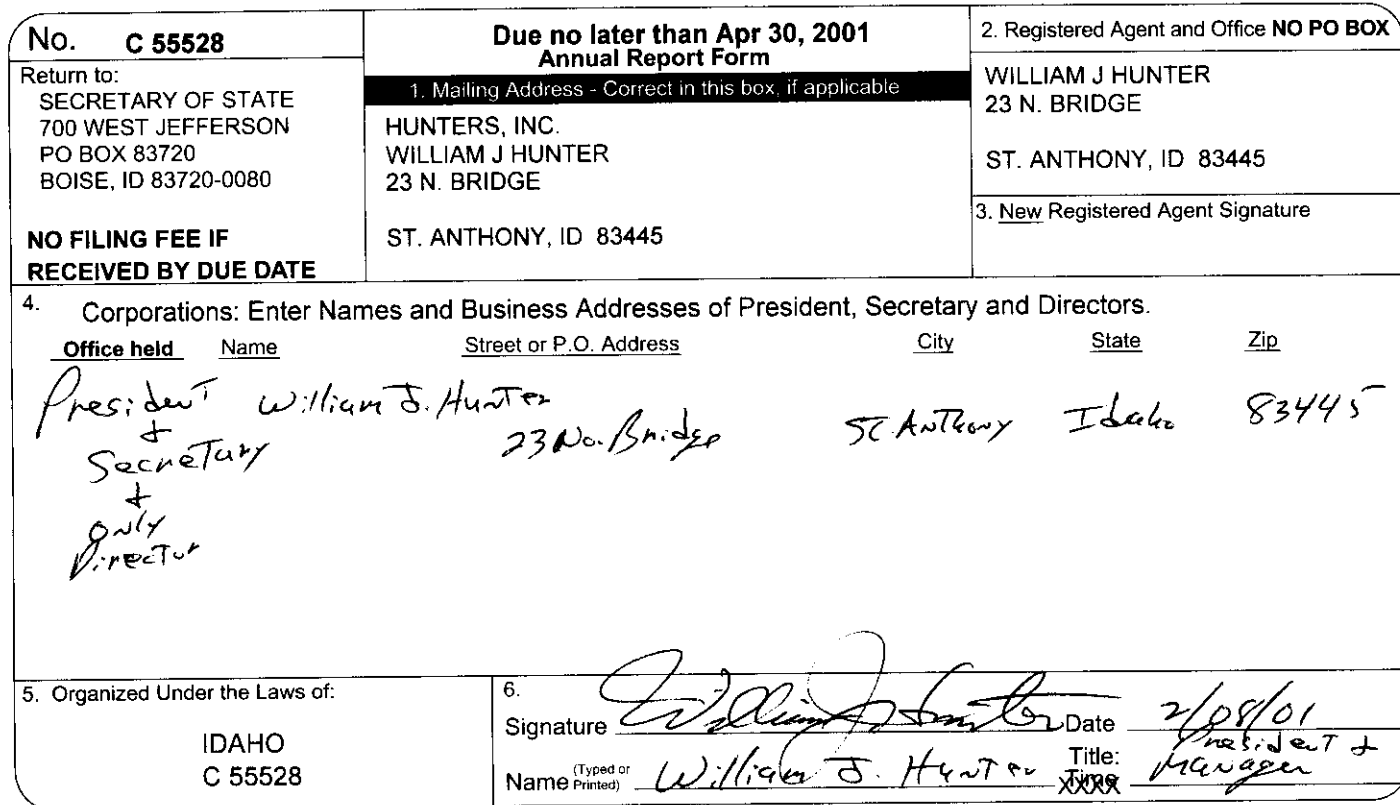 No. C 55528
Return to:
SECRETARY OF STATE
700 WEST JEFFERSON
PO BOX 83720
BOISE, ID 83720-0080
NO FILING FEE IF
RECEIVED BY DUE DATE
Due no later than Apr 30, 2001
Annual Report Form
1. Mailing Address - Correct in this box, if applicable
HUNTERS, INC.
WILLIAM J HUNTER
23 N. BRIDGE
ST. ANTHONY, ID 83445
2. Registered Agent and Office NO PO BOX
WILLIAM J HUNTER
23 N. BRIDGE
ST. ANTHONY, ID 83445
3. New Registered Agent Signature
4. Corporations: Enter Names and Business Addresses of President, Secretary and Directors.
Office held Name Street or P.O. Address City State Zip
President William J. Hunter
23 No. Bridge St. Anthony Idaho 83445
+
Secretary
+
Only
Director
5. Organized Under the Laws of:
IDAHO
C 55528
6.
Signature William J Hunter Date 2/08/01
Name (Typed or Printed) William J. Hunter Title: President + Manager